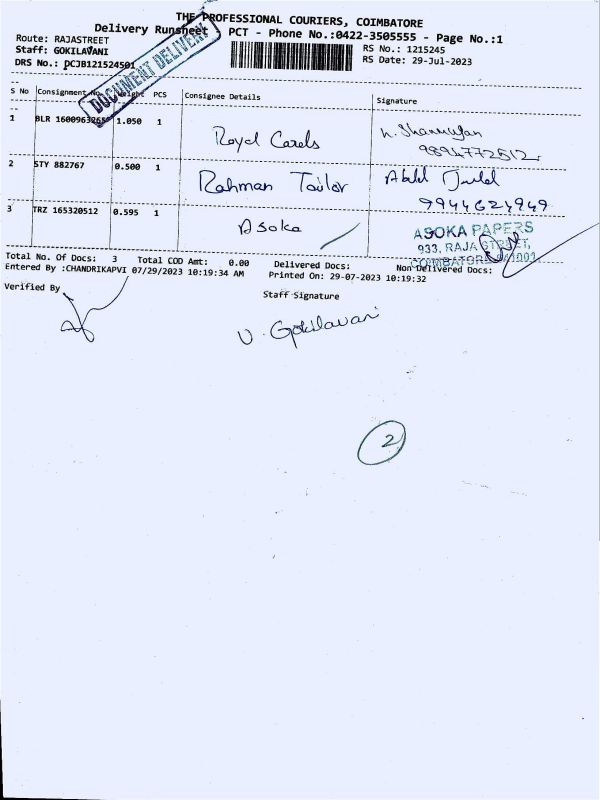 THE PROFESSIONAL COURIERS, COIMBATORE
Delivery Runsheet PCT - Phone No.:0422-3505555 - Page No.:1
Route: RAJASTREET
RS No.: 1215245
Staff: GOKILAVANI
RS Date: 29-Jul-2023
DRS No.: PCJB121524501
DOCUMENT DELIVERY
S No Consignment No Weight PCS Consignee Details Signature
1 BLR 1 1.050 1 Royal Cards
9894772512
2 STY 882767 0.500 1 Rahman Tailor
9944624949
3 TRZ 165320512 0.595 1 Asoka
ASOKA PAPERS
933, RAJA STREET,
COIMBATORE 641001
Total No. Of Docs: 3 Total COD Amt: 0.00 Delivered Docs: Non Delivered Docs:
Entered By :CHANDRIKAPVI 07/29/2023 10:19:34 AM Printed On: 29-07-2023 10:19:32
Verified By
Staff Signature
V. Gokilavani
2